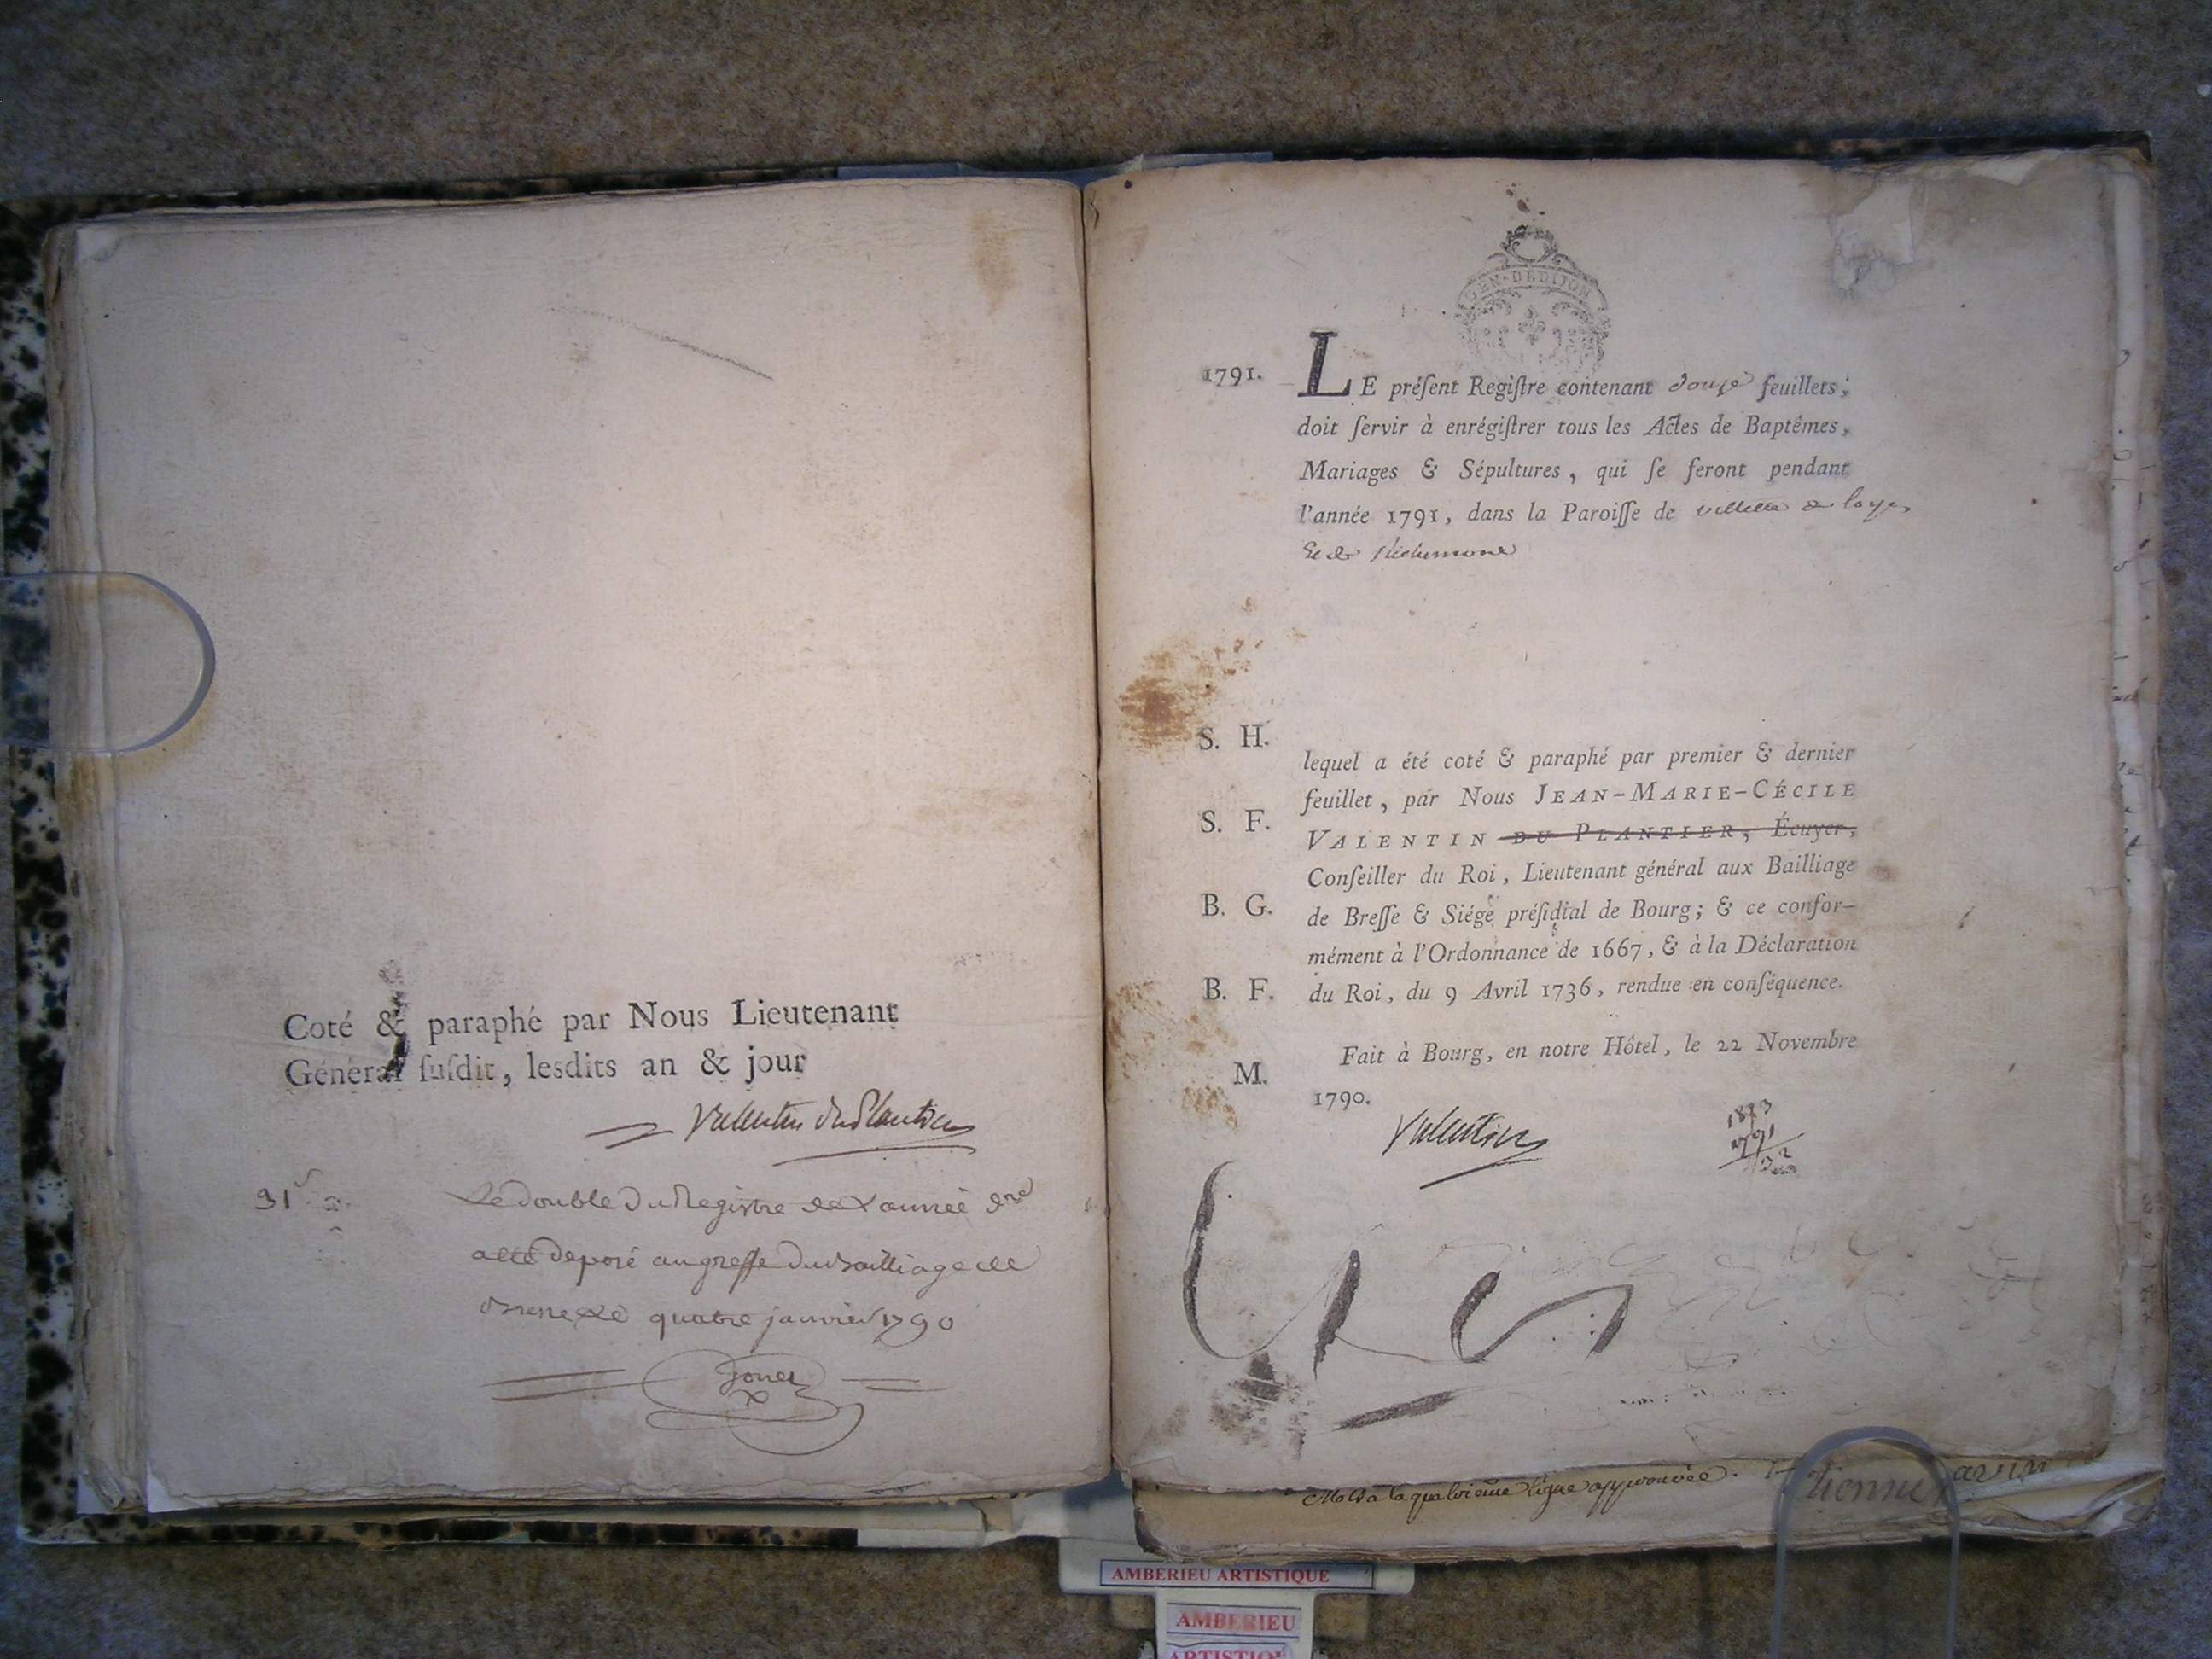 Coté & paraphé par Nous Lieutenant
Général susdit, lesdits an & jour
Valentin duPlantier
Le double du Registre de L'année
a été déposé au greffe du Bailliage de
quatre janvier 1790
GEN·DE DIJON
1791.
LE préſent Regiſtre contenant douze feuillets,
doit ſervir à enrégiſtrer tous les Actes de Baptêmes,
Mariages & Sépultures, qui ſe feront pendant
l'année 1791, dans la Paroiſſe de villette de loyes
et de Richemont
S. H.
S. F.
B. G.
B. F.
M.
lequel a été coté & paraphé par premier & dernier
feuillet, par Nous JEAN-MARIE-CÉCILE
VALENTIN DU PLANTIER, Écuyer,
Conſeiller du Roi, Lieutenant général aux Bailliage
de Breſſe & Siége préſidial de Bourg; & ce confor-
mément à l'Ordonnance de 1667, & à la Déclaration
du Roi, du 9 Avril 1736, rendue en conſéquence.
Fait à Bourg, en notre Hôtel, le 22 Novembre
1790.
Valentin
a la quatrieme ligne approuvée.
AMBERIEU ARTISTIQUE
AMBERIEU
ARTISTIQUE